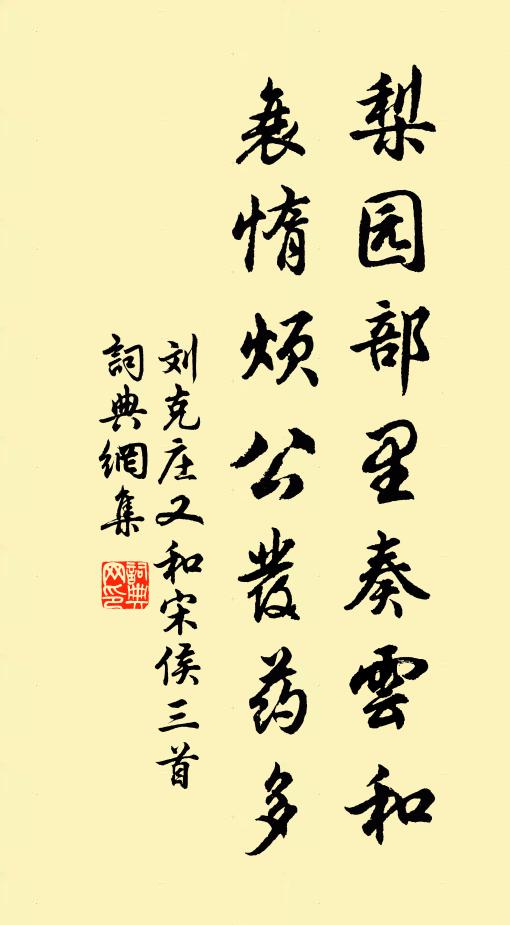 梨园部里奏雲和
衰惰烦公發药多
刘克庄又和宋侯三首
詞典網集
詞典网印